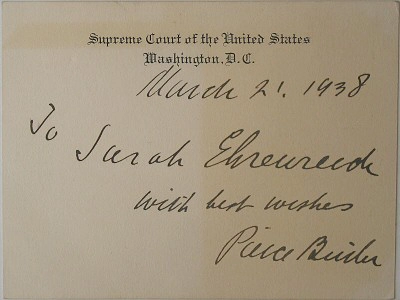 Supreme Court of the United States
Washington, D.C.
March 21. 1938
To Sarah Ehrenreich
with best wishes
Pierce Butler